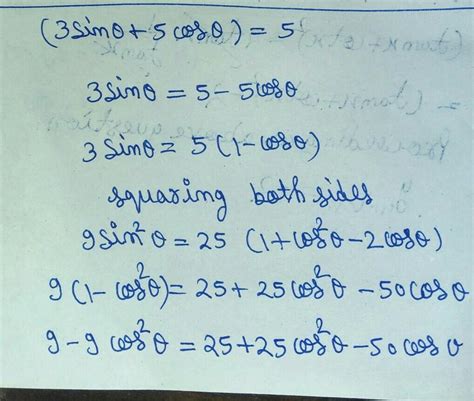 (3sinθ + 5cosθ) = 5
3sinθ = 5 - 5cosθ
3sinθ = 5(1 - cosθ)
squaring both sides
9sin²θ = 25 (1 + cos²θ - 2cosθ)
9(1 - cos²θ) = 25 + 25cos²θ - 50cosθ
9 - 9cos²θ = 25 + 25cos²θ - 50cosθ